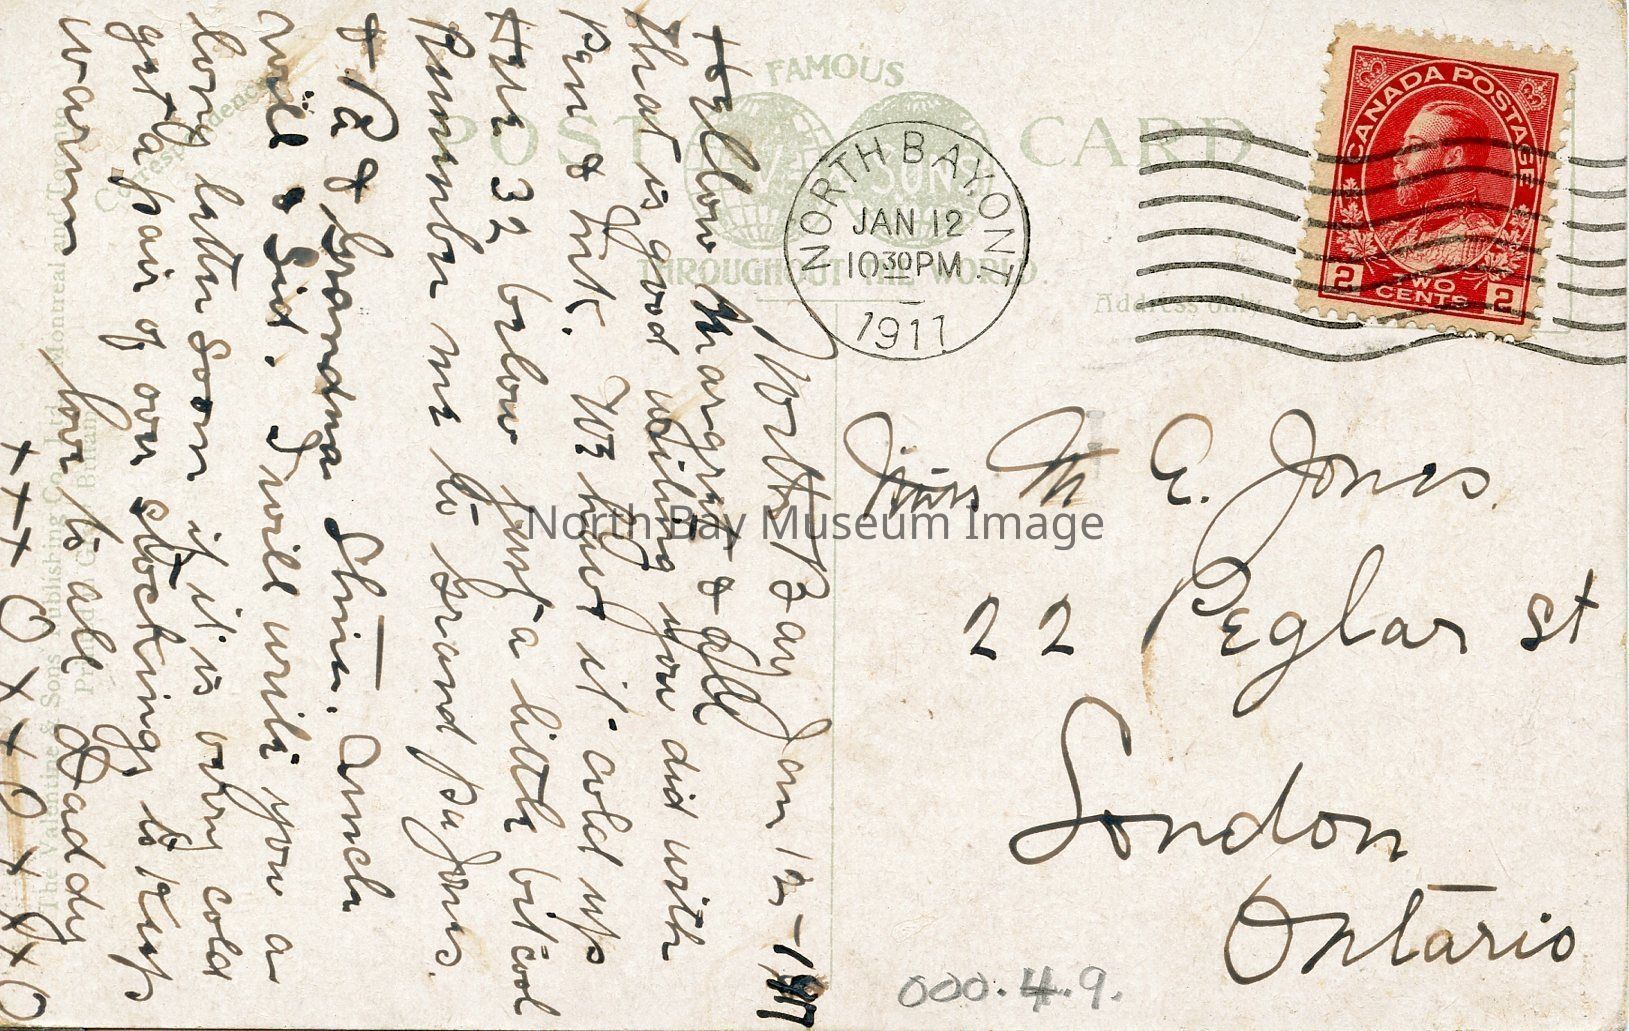 FAMOUS
POST CARD
VALENTINE & SONS
THROUGHOUT THE WORLD.
Correspondence
Address only
NORTH BAY, ONT.
JAN 12
10 30 PM
1911
CANADA POSTAGE
2 TWO CENTS 2
Miss M E. Jones.
22 Peglar st
London
Ontario
000.4.9.
North Bay Jan 12 - 1911
Hellow Margret & all
that is good writing you did with
pen & ink. W3 have it cold up
Here 32 below just a little bit cool
Rumber me to grand pa Jones
& Pa & Grandma Stine. Uncle
Will & Sid. I will write you a
long letter soon it it is very cold
got a pair of over stockings to Kup
warm
love to all Daddy
+ + + O x x O x x O
The Valentine & Sons Publishing Co. Ltd. Montreal and Toronto
Printed in Great Britain
North Bay Museum Image